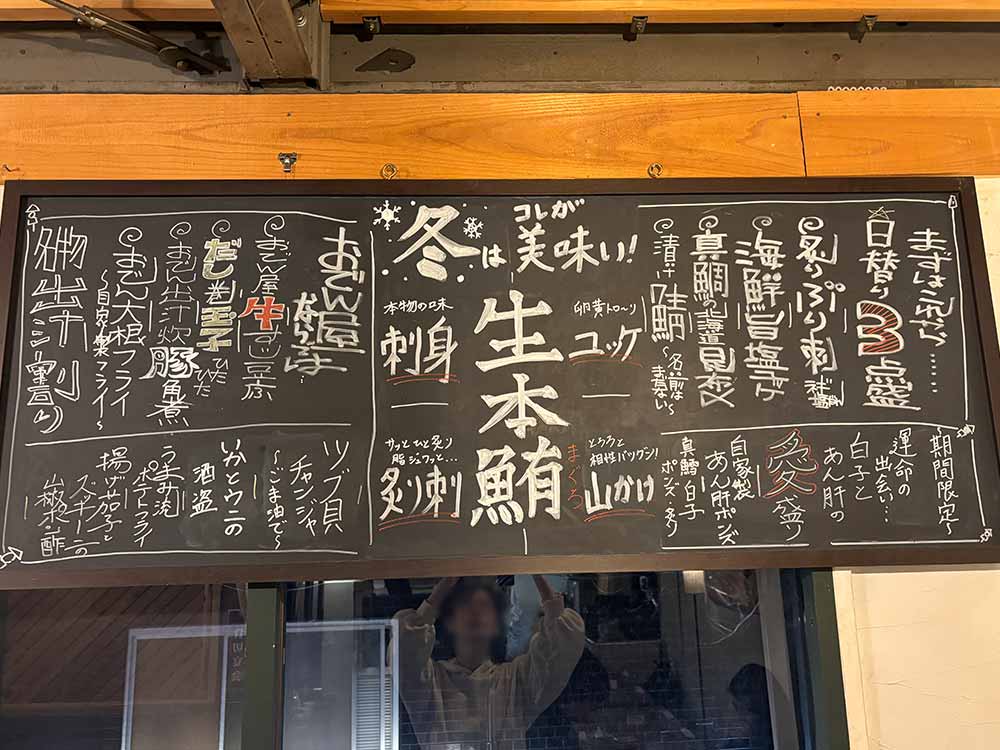 まずはこれから……
日替り3点盛
炙りぶり刺
海鮮旨塩ユッケ
真鯛の北海道昆布〆
漬け鯖
〜名前は
まだない〜
〜期間限定〜
運命の
出会い…
白子と
あん肝の
愛盛り
自家製
あん肝ポンズ
真鱈白子
ポンズ・炙り
冬は
コレが
美味い!
生本鮪
まぐろ
本物の味
刺身
卵黄トローリ
ユッケ
サッとひと炙り
脂ジュワッと…
炙り刺
とろろと
相性バツグン!
山かけ
おでん屋
ならでは…
おでん屋牛すじ豆腐
だし巻玉子
ひたひた
おでん出汁炊豚角煮
おでん大根フライ
〜自家製フライ〜
ツブ貝
チャンジャ
〜ごま油で〜
いかとウニの
酒盗
うまみ流
ポテトフライ
揚げ茄子と
ズッキーニの
山椒酢